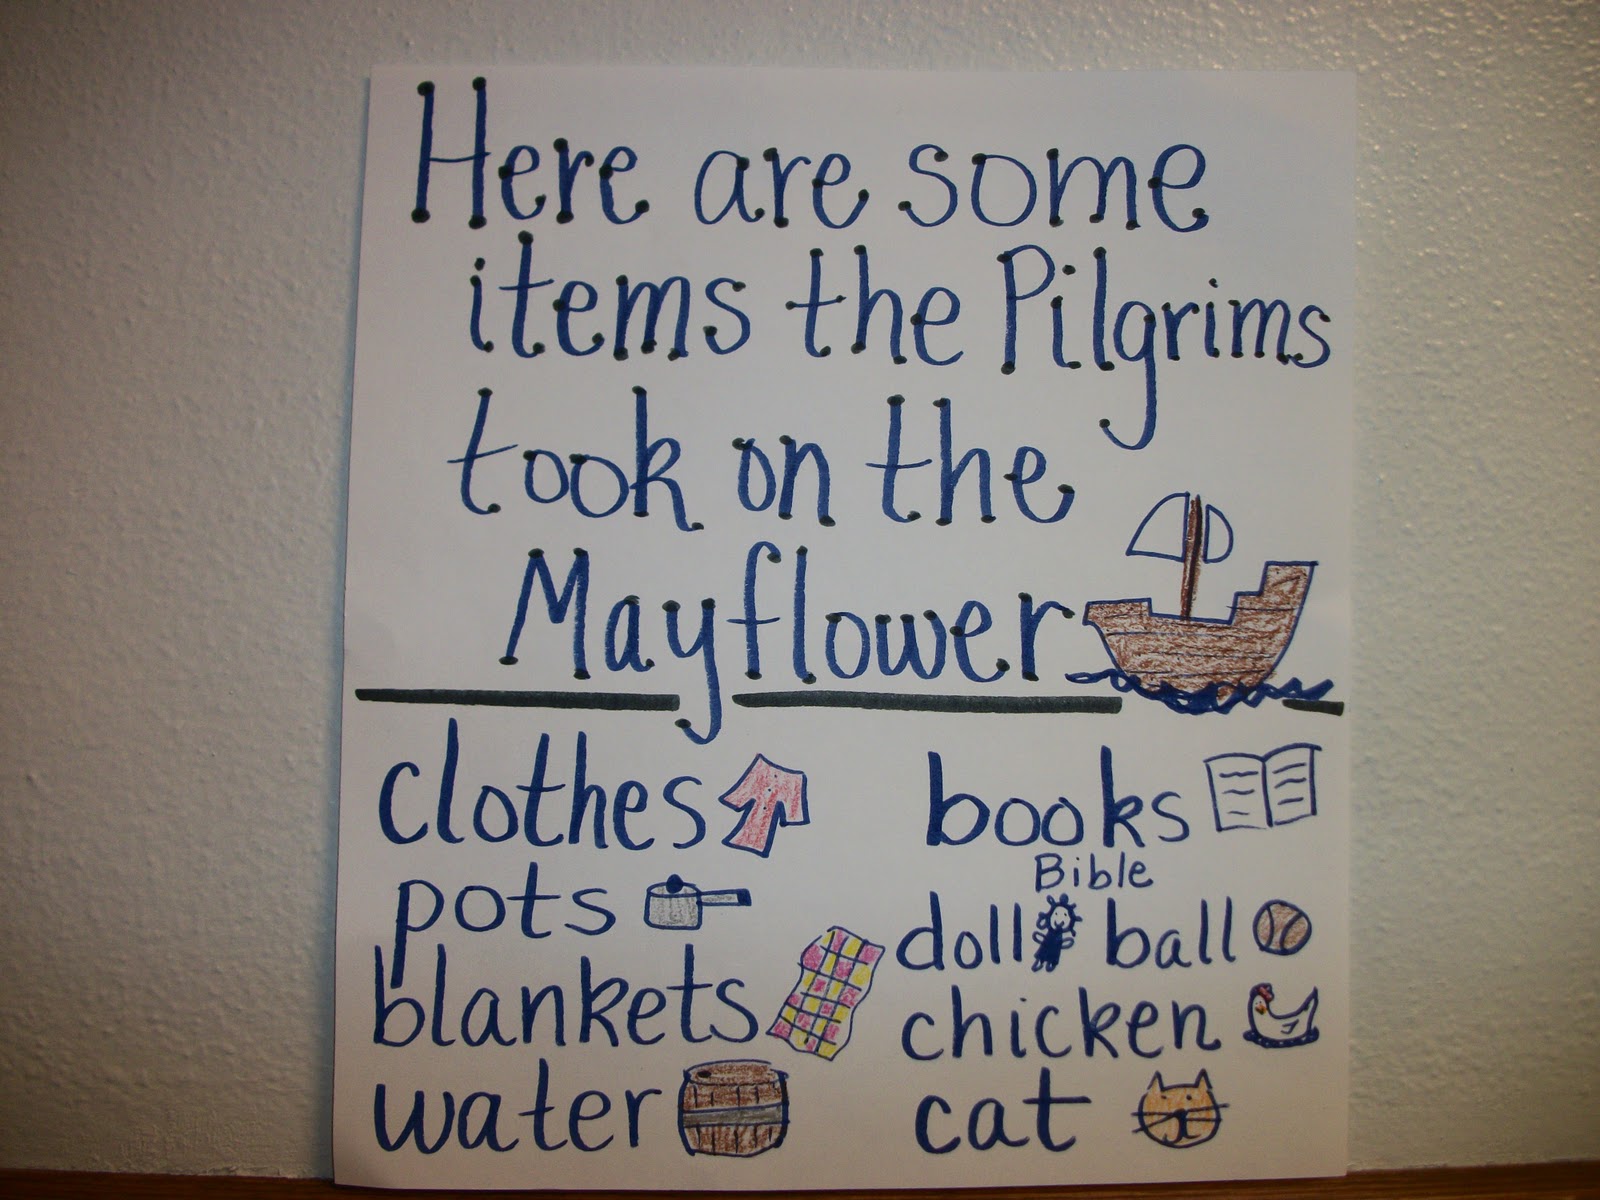 Here are some
items the Pilgrims
took on the
Mayflower
clothes
pots
blankets
water
books
Bible
doll ball
chicken
cat